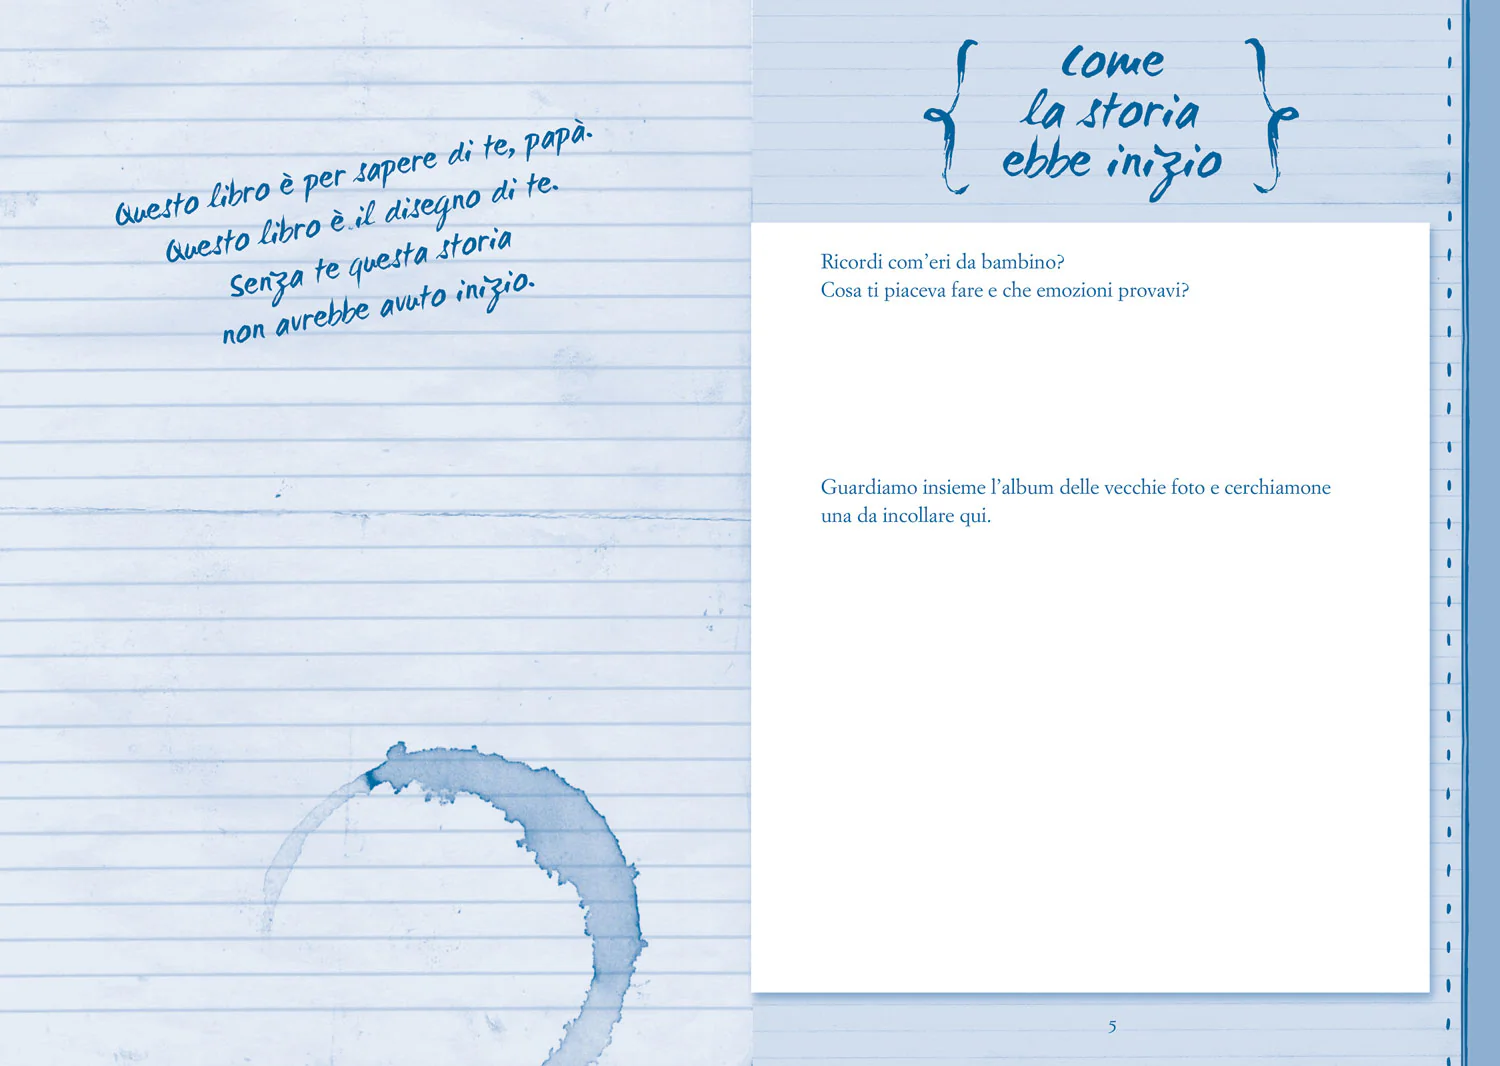 Questo libro è per sapere di te, papà.
Questo libro è il disegno di te.
Senza te questa storia
non avrebbe avuto inizio.
Come
la storia
ebbe inizio
Ricordi com’eri da bambino?
Cosa ti piaceva fare e che emozioni provavi?
Guardiamo insieme l’album delle vecchie foto e cerchiamone
una da incollare qui.
5